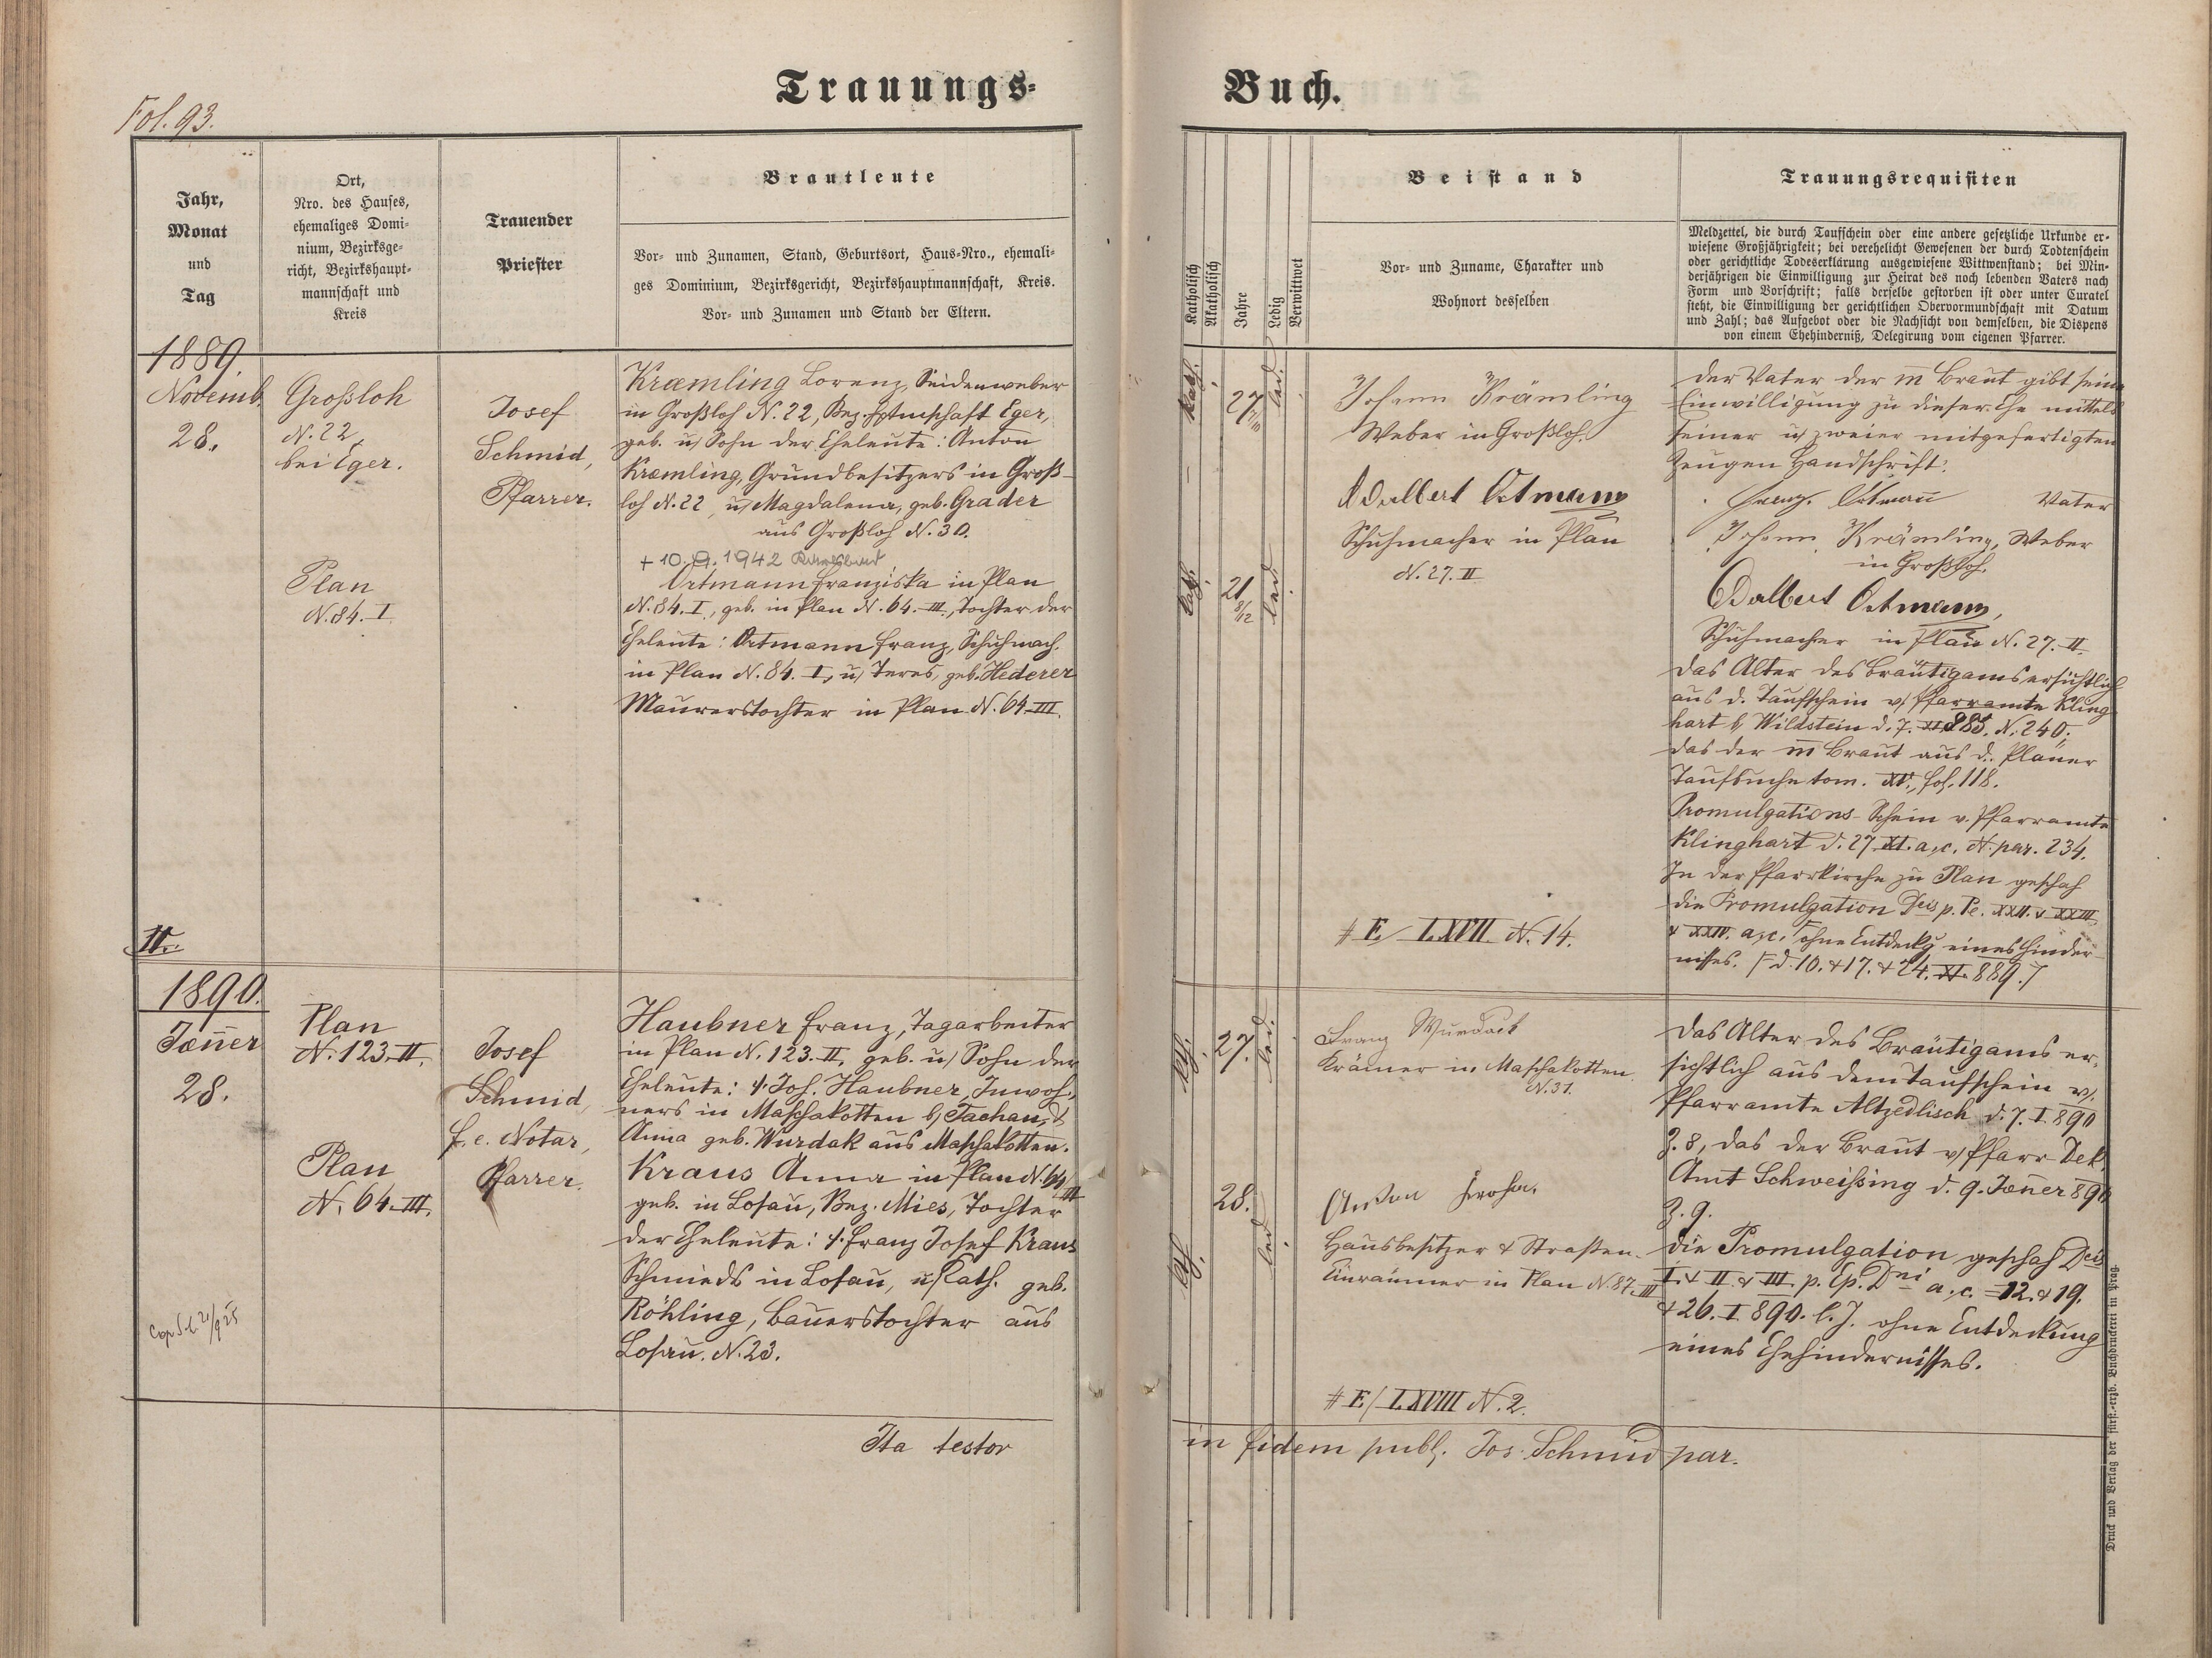 Fol. 93.
Trauungs=
Buch.
Jahr,
Monat
und
Tag
Ort,
Nro. des Hauses,
ehemaliges Domi=
nium, Bezirksge=
richt, Bezirkshaupt=
mannschaft und
Kreis
Trauender
Priester
Brautleute
Vor= und Zunamen, Stand, Geburtsort, Haus=Nro., ehemali=
ges Dominium, Bezirksgericht, Bezirkshauptmannschaft, Kreis.
Vor= und Zunamen und Stand der Eltern.
Katholisch
Akatholisch
Jahre
Ledig
Verwittwet
Beistand
Vor= und Zuname, Charakter und
Wohnort desselben
Trauungsrequisiten
Meldzettel, die durch Taufschein oder eine andere gesetzliche Urkunde er=
wiesene Großjährigkeit; bei verehelicht Gewesenen der durch Todtenschein
oder gerichtliche Todeserklärung ausgewiesene Wittwenstand; bei Min=
derjährigen die Einwilligung zur Heirat des noch lebenden Vaters nach
Form und Vorschrift; falls derselbe gestorben ist oder unter Curatel
steht, die Einwilligung der gerichtlichen Obervormundschaft mit Datum
und Zahl; das Aufgebot oder die Nachsicht von demselben, die Dispens
von einem Ehehinderniß, Delegirung vom eigenen Pfarrer.
1889.
Novemb.
28.
Großloh
N. 22
bei Eger.
Plan
N. 84. I.
Josef
Schmid,
Pfarrer.
Kræmling Lorenz, Seidenweber
in Großloh N. 22, Bez. Hptmschaft Eger,
geb. u/ Sohn der Eheleute: Anton
Kræmling, Grundbesitzers in Groß-
loh N. 22, u/ Magdalena, geb. Grader
aus Großloh N. 30.
+ 10. 9. 1942
Ortmann Franziska in Plan
N. 84. I., geb. in Plan N. 64. III., Tochter der
Eheleute: Ortmann Franz, Schuhmach.
in Plan N. 84. I, u/ Teres, geb. Hederer
Maurerstochter in Plan N. 64. III.
kath.
27
led.
kath.
21
8/12
led.
Johann Krämling
Weber in Großloh.
Adalbert Ortmann
Schuhmacher in Plan
N. 27. II
# E/ LXVII. N. 14.
Der Vater der m Braut gibt seine
Einwilligung zu dieser Ehe mittels
seiner u/ zweier mitgefertigten
Zeugen Handschrift:
Franz Ortmann Vater
Johann Krämling, Weber
in Großloh.
Adalbert Ortmann,
Schuhmacher in Plan N. 27. II.
Das Alter des Bräutigams ersichtlich
aus d. Taufschein v/ Pfarramte Kling
hart b/ Wildstein d. 7. XI 885. N. 240.
Das der m Braut aus d. Planer
Taufbuche tom. XV., fol. 118.
Promulgations-Schein v. Pfarramte
Klinghart d. 27 XI. a. c. N. par. 234.
In der Pfarrkirche zu Plan geschah
die Promulgation Dcis p. Pe. XXII. & XXIII.
& XXIV. a. c. ohne Entdeckg eines Hinder-
nisses. /d. 10. & 17. & 24. XI. 889./
II.
1890.
Jænner
28.
Plan
N. 123. II.
Plan
N. 64. III.
Josef
Schmid,
f. e. Notar,
Pfarrer.
Haubner Franz, Tagarbeiter
in Plan N. 123. II, geb. u/ Sohn der
Eheleute: † Joh. Haubner, Inwoh-
ners in Maschakotten b/ Tachau, &
Anna geb. Wurdak aus Maschakotten.
Kraus Anna in Plan N. 64/III
geb. in Losau, Bez. Mies, Tochter
der Eheleute: † Franz Josef Kraus
Schmieds in Losau, u/ Kath. geb.
Röhling, Bauerstochter aus
Losau. N. 23.
kath.
27.
led.
kath.
28.
led.
Franz Wurdack
Krämer in Maschakotten.
N. 31.
Anton
Hausbesitzer & Straßen-
Einräumer in Plan N. 87. III
# E/ LXVIII N. 2.
Das Alter des Bräutigams er-
sichtlich aus dem Taufschein v/.
Pfarramte Altzedlisch d. 7. I 890
Z. 8, das der Braut v/ Pfarr-Dek.
Amt Schweißing d. 9. Jænner 890
Z. 9.
Die Promulgation geschah Dcis
I. & II. & III. p. Ep. Dni a. c. = 12. & 19.
& 26. I 890. l. J. ohne Entdeckung
eines Ehehindernisses.
Ita testor
in fidem publ. Jos. Schmid par.
Druck und Verlag der fürst.=erzb. Buchdruckerei in Prag.